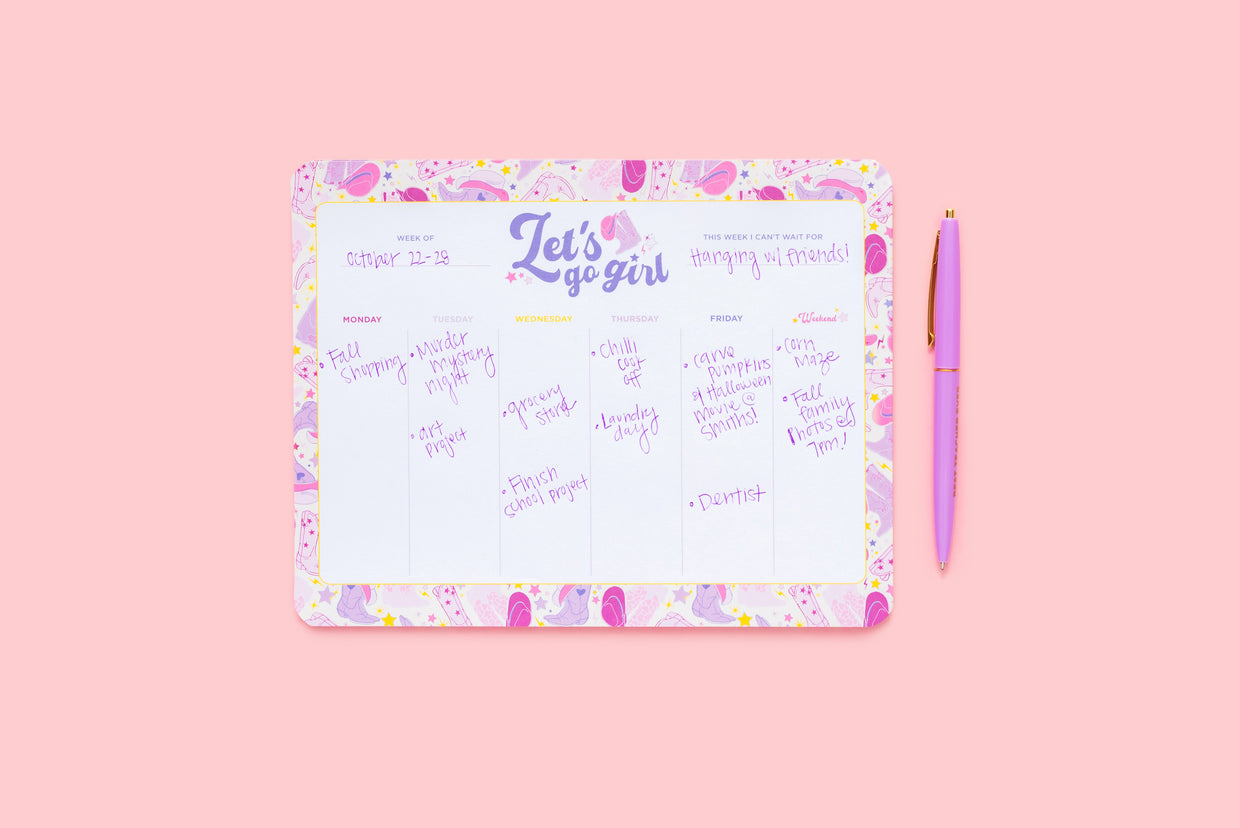 Let's
go girl
WEEK OF
October 22-28
THIS WEEK I CAN'T WAIT FOR
Hanging w/ friends!
MONDAY
• Fall
shopping
TUESDAY
• Murder
mystery
night
• art
project
WEDNESDAY
• grocery
store
• Finish
school project
THURSDAY
• Chilli
cook
off
• Laundry
day
FRIDAY
• carve
pumpkins
& Halloween
movie @
Smiths!
• Dentist
Weekend
• corn
maze
• Fall
family
photos @
7pm!
BEST TEACHER EVER